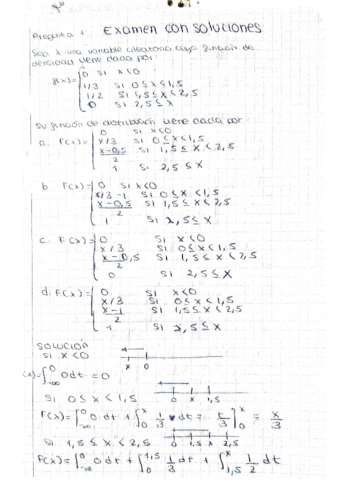 Pregunta 1 Examen con soluciones
Sea X una variable aleatoria cuya función de
densidad viene dada por:
f(x)= 0 si x<0
1/3 si 0≤x<1,5
1/2 si 1,5≤x<2,5
0 si 2,5≤x
Su función de distribución viene dada por:
a. F(x)= 0 si x<0
x/3 si 0≤x<1,5
x-0,5/2 si 1,5≤x<2,5
1 si 2,5≤x
b F(x)= 0 si x<0
x/3-1 si 0≤x<1,5
x-0,5/2 si 1,5≤x<2,5
1 si 2,5≤x
c. F(x)= 0 si x<0
x/3 si 0≤x<1,5
x-0,5/2 si 1,5≤x<2,5
0 si 2,5≤x
d. F(x)= 0 si x<0
x/3 si 0≤x<1,5
x-1/2 si 1,5≤x<2,5
1 si 2,5≤x
Solución
si x<0
x 0
(x)=∫-∞^0 0dt=0
si 0≤x<1,5
0 x 1,5
F(x)=∫-∞^0 0 dt + ∫0^x 1/3 dt = t/3]0^x = x/3
si 1,5≤x<2,5
0 1,5 x 2,5
F(x)=∫-∞^0 0 dt + ∫0^1,5 1/3 dt + ∫1,5^x 1/2 dt